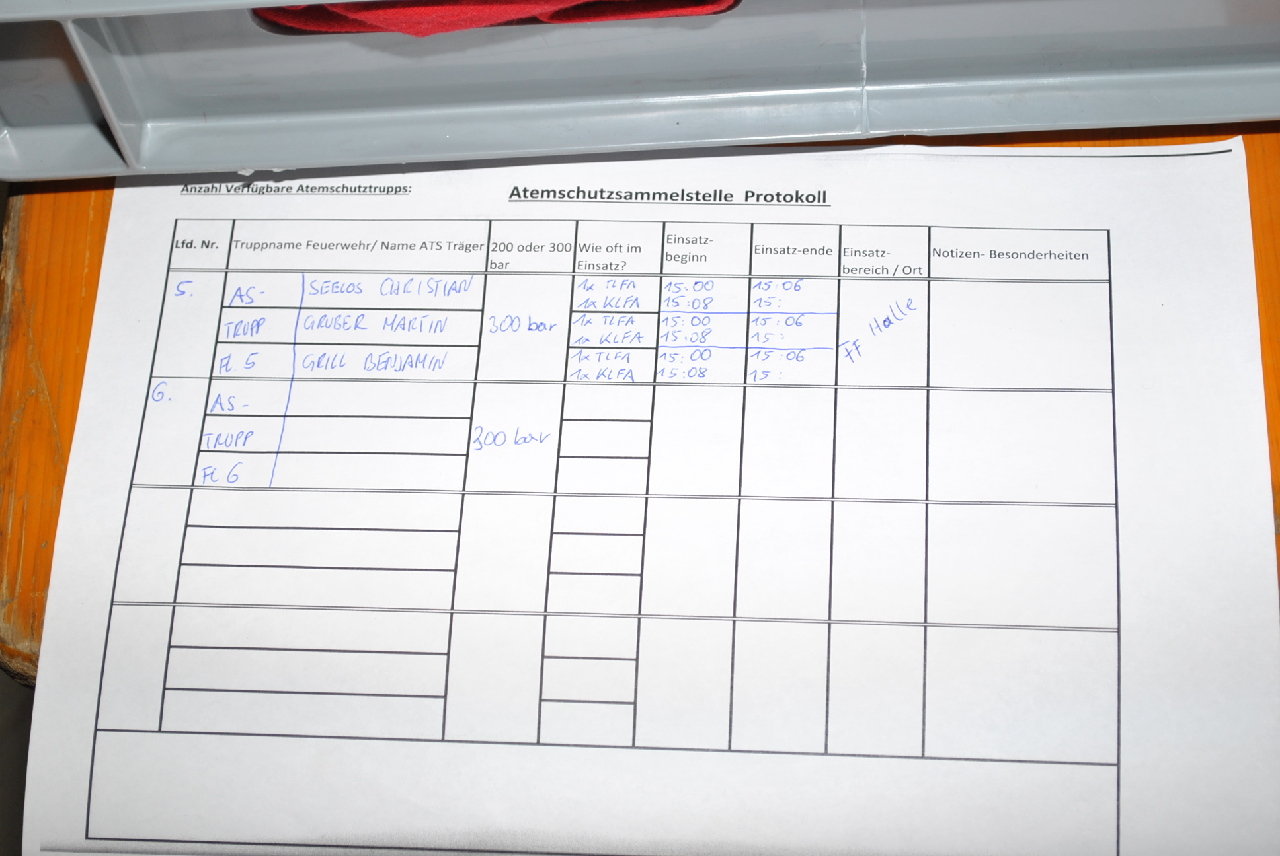 Anzahl Verfügbare Atemschutztrupps:
Atemschutzsammelstelle Protokoll
Lfd. Nr. Truppname Feuerwehr/ Name ATS Träger 200 oder 300 bar Wie oft im Einsatz? Einsatz-beginn Einsatz-ende Einsatz-bereich / Ort Notizen- Besonderheiten
5. AS- SEELOS CHRISTIAN 1x TLFA 15.00 15:06
1x KLFA 15:08 15:
TRUPP GRUBER MARTIN 300 bar 1x TLFA 15:00 15:06 FF Halle
1x KLFA 15.08 15:
FL 5 GRILL BENJAMIN 1x TLFA 15:00 15:06
1x KLFA 15:08 15:
6. AS-
TRUPP 300 bar
FL 6